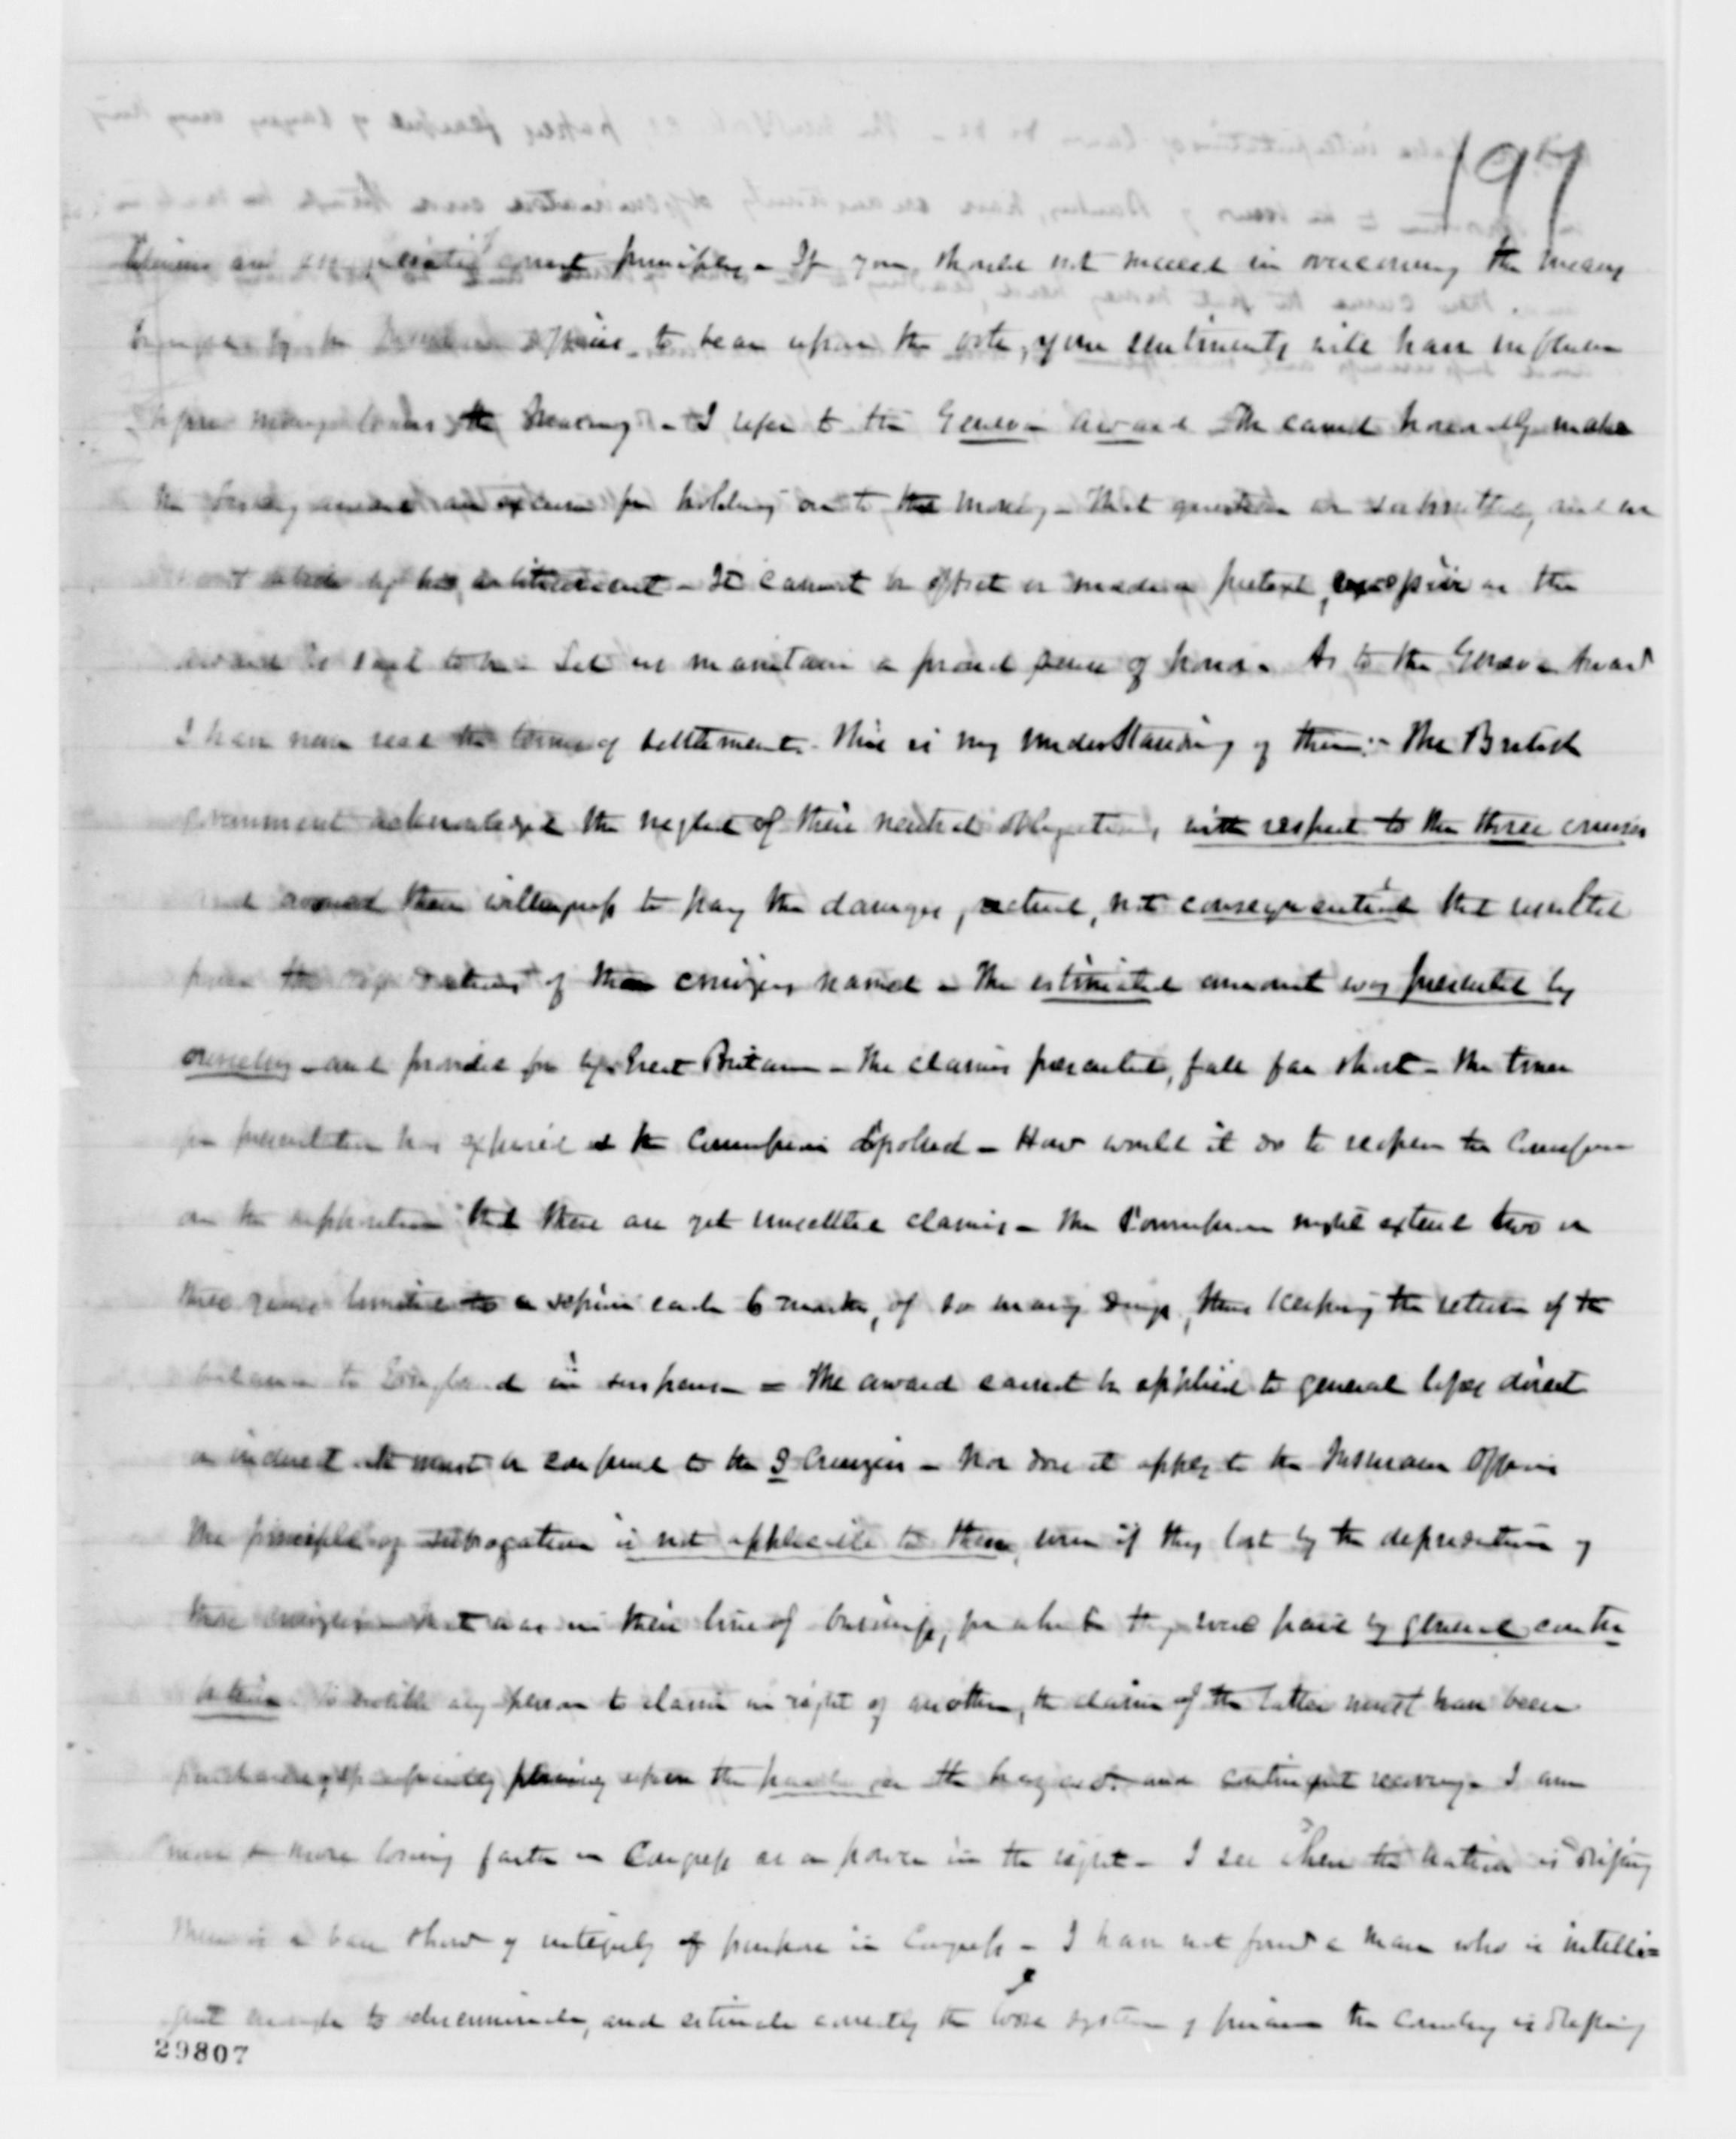 197
principles - If you should not succeed in overcoming the
to bear upon the vote, your sentiments will have influence
the - I refer to the Geneva Award We cannot honorably make
the award an excuse for holding on to the money - That question was submitted, and we
abide by the arbitrament - It cannot be offset or made a pretext, as the
award is said to be - Let us maintain a proud sense of honor - As to the Geneva Award
I have now read the terms of settlement. This is my understanding of them :- The British
government acknowledged the neglect of their neutral obligations, with respect to the three cruisers
and avowed their willingness to pay the damages, actual, not consequential that resulted
from the of the cruisers named - The estimated amount was presented by
ourselves - and provided for by Great Britain - The claims presented, fall far short - The time
for presentation has expired & the Commission dissolved - How would it do to reopen the Commission
on the supposition that there are yet unsettled claims - The Commission might extend two or
three years limited to a session each 6 months, of so many days, thus keeping the return of the
balance to England in suspense - The award cannot be applied to general losses direct
or indirect it must be confined to the 3 Cruizers - Nor does it apply to the Insurance Offices
The principle of subrogation is not applicable to them, even if they lost by the depredations of
these cruizers - that was in their line of business, for which they were paid by general contri
bution. To entitle any person to claim in right of another, the claim of the latter must have been
upon the the hazard and contingent recovery - I am
more & more losing faith in Congress as a power in the right - I see where the nation is drifting
There is a bare show of integrity of purpose in Congress - I have not found a man who is intelli=
gent enough to discriminate, and estimate correctly the loose system of finance the Country is drifting
29807